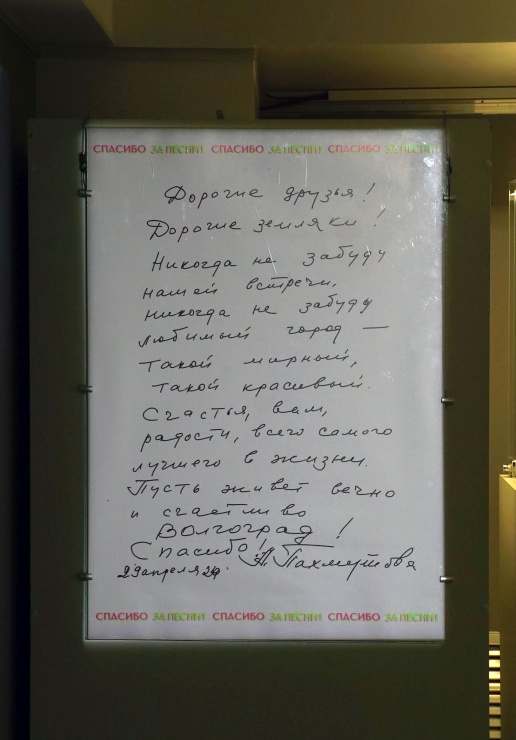 СПАСИБО ЗА ПЕСНИ! СПАСИБО ЗА ПЕСНИ! СПАСИБО ЗА ПЕСНИ!
Дорогие друзья!
Дорогие земляки!
Никогда не забуду
нашей встречи,
никогда не забуду
любимый город —
такой мирный,
такой красивый.
Счастья, вам,
радости, всего самого
лучшего в жизни.
Пусть живет вечно
и счастливо
Волгоград!
Спасибо! А. Пахмутова
29 апреля
СПАСИБО ЗА ПЕСНИ! СПАСИБО ЗА ПЕСНИ! СПАСИБО ЗА ПЕСНИ!